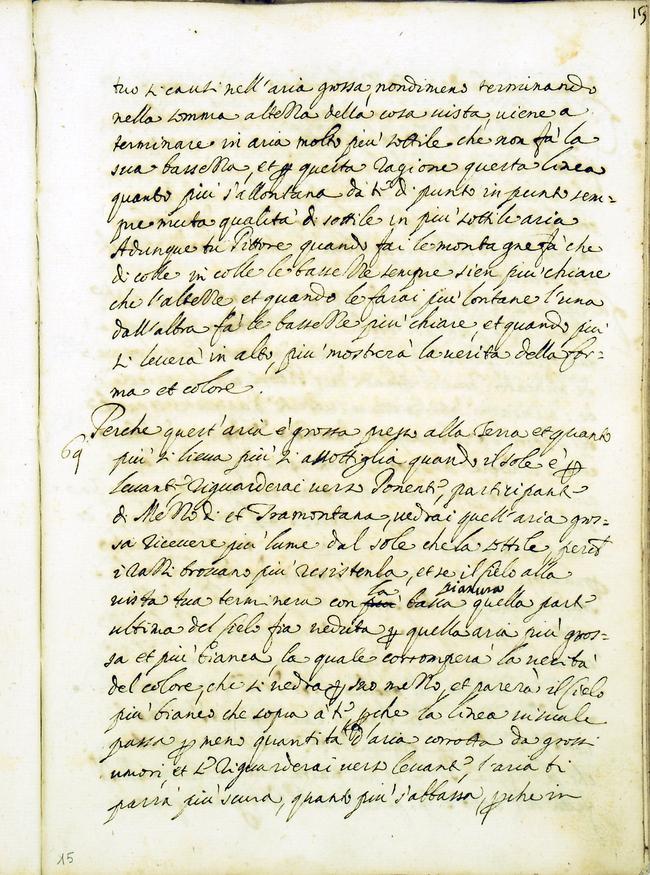 15
tuo si causi nell'aria grossa, nondimeno terminando
nella somma altezza della cosa uista, uiene a
terminare in aria molto più sottile che non fà la
sua bassezza, et ꝑ questa ragione questa linea
quanto più s'allontana da te di punto in punto sem=
pre muta qualità di sottile in più sottile aria
Adunque tu Pittore quando fai le montagne fà che
di colle in colle le bassezze sempre sien più chiare
che l'altezze et quando le farai più lontane l'una
dall'altra fà le bassezze più chiare, et quando più
si leuerà in alto, più mostrerà la uerità della for=
ma et colore
Perche quest'aria è grossa presso alla Terra et quanto
69
più si lieua più s'assottiglia quando il sole è ꝑ
leuante riguarderai uerso Ponente, participante
di Mezzo dì et Tramontana, uedrai quell'aria gros=
sa riceuere più lume dal sole che la sottile, però
i razzi trouano più resistenza, et se il Cielo alla
uista tua terminerà con la bassa pianura quella parte
ultima del Cielo fia ueduta ꝑ quella aria più gros=
sa et più bianca la quale corromperà la uerità
del colore, che si uedrà ꝑ suo mezzo, et parerà il Cielo
più bianco che sopra à te, ꝑche la linea uisuale
passa ꝑ meno quantità d'aria corrotta da grossi
umori, et se riguarderai uerso leuante, l'aria ti
parrà più scura, quanto più s'abbassa, ꝑche in
15